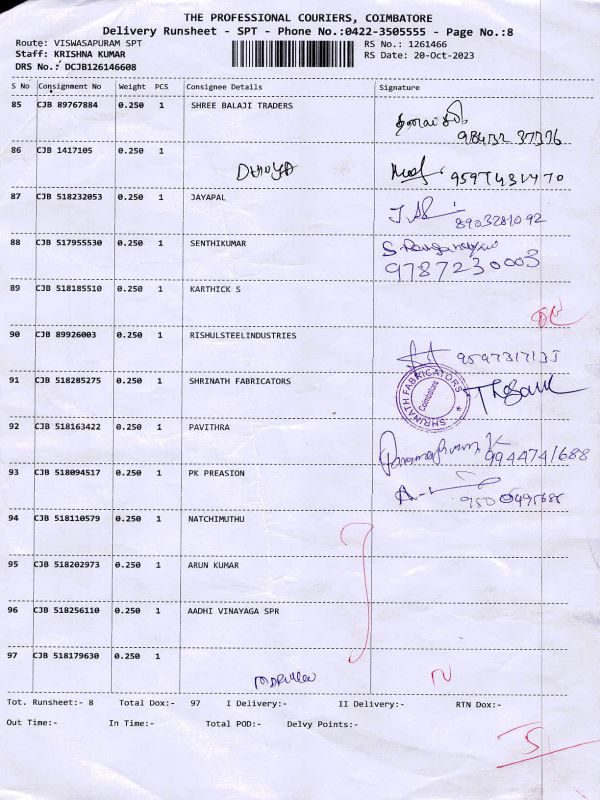 THE PROFESSIONAL COURIERS, COIMBATORE
Delivery Runsheet - SPT - Phone No.:0422-3505555 - Page No.:8
Route: VISWASAPURAM SPT RS No.: 1261466
Staff: KRISHNA KUMAR RS Date: 20-Oct-2023
DRS No.: DCJB126146608
S No Consignment No Weight PCS Consignee Details Signature
85 CJB 89767884 0.250 1 SHREE BALAJI TRADERS
98432 37376
86 CJB 1417105 0.250 1
87 CJB 518232053 0.250 1 JAYAPAL
8903281092
88 CJB 517955530 0.250 1 SENTHIKUMAR
9787230003
89 CJB 518185510 0.250 1 KARTHICK S
90 CJB 89926003 0.250 1 RISHULSTEELINDUSTRIES
91 CJB 518285275 0.250 1 SHRINATH FABRICATORS
SHRINATH FABRICATORS
Coimbatore
92 CJB 518163422 0.250 1 PAVITHRA
9944741688
93 CJB 518094517 0.250 1 PK PREASION
94 CJB 518110579 0.250 1 NATCHIMUTHU
95 CJB 518202973 0.250 1 ARUN KUMAR
96 CJB 518256110 0.250 1 AADHI VINAYAGA SPR
97 CJB 518179630 0.250 1
N
Tot. Runsheet:- 8 Total Dox:- 97 I Delivery:- II Delivery:- RTN Dox:-
Out Time:- In Time:- Total POD:- Delvy Points:-